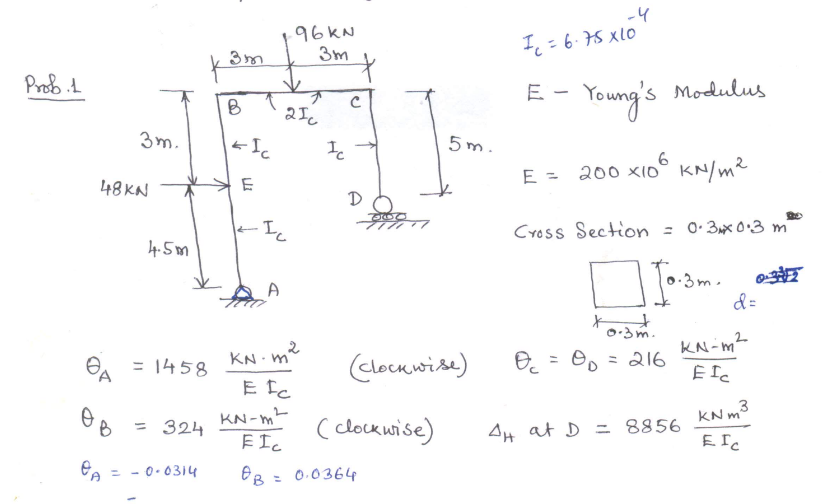 Prob.1
96 KN
3m
3m
B
C
2Ic
3m.
Ic
Ic
5m.
48KN
E
D
4.5m
Ic
A
Ic = 6.75 x10^-4
E - Young's Modulus
E = 200 x10^6 KN/m^2
Cross Section = 0.3m x 0.3 m
0.3m.
d =
0.3m.
θA = 1458 KN·m^2 / E Ic (clockwise)
θC = θD = 216 KN-m^2 / E Ic
θB = 324 KN-m^2 / E Ic (clockwise)
ΔH at D = 8856 KN m^3 / E Ic
θA = -0.0314 θB = 0.0364